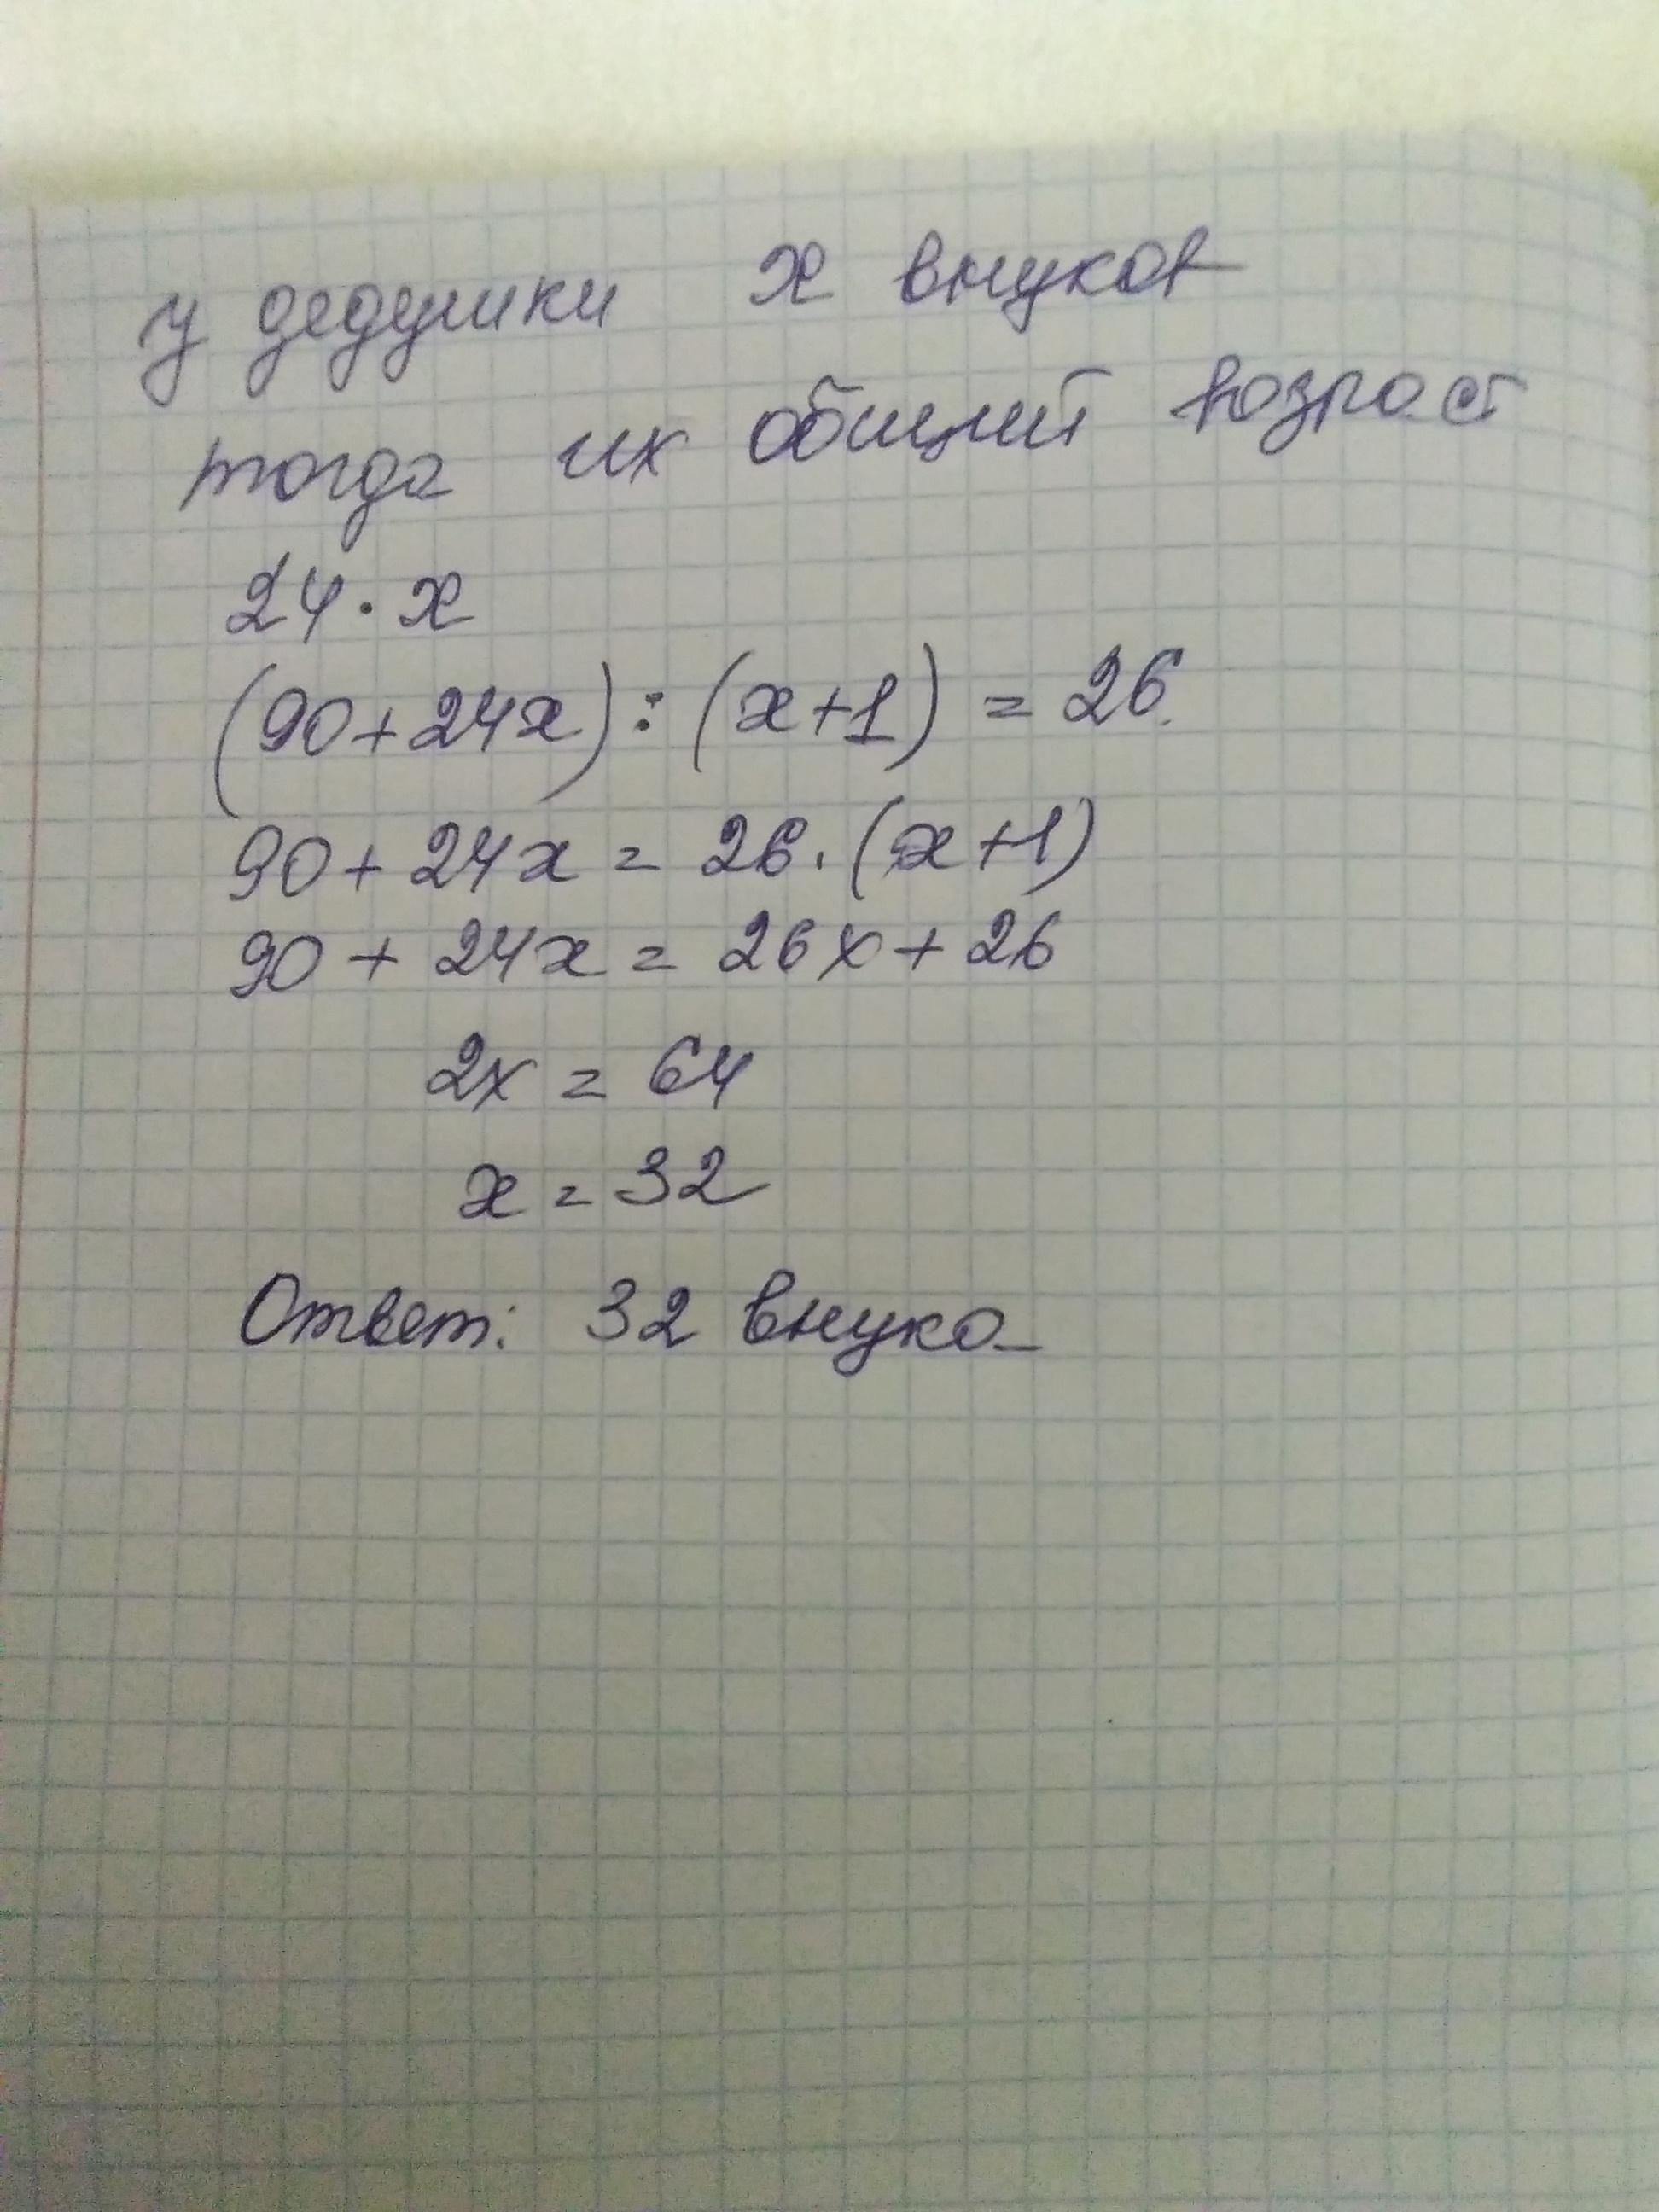 у дедушки х внуков
тогда их общий возраст
24 · х
(90+24х) : (х+1) = 26
90 + 24х = 26 · (х+1)
90 + 24х = 26х + 26
2х = 64
х = 32
Ответ: 32 внука